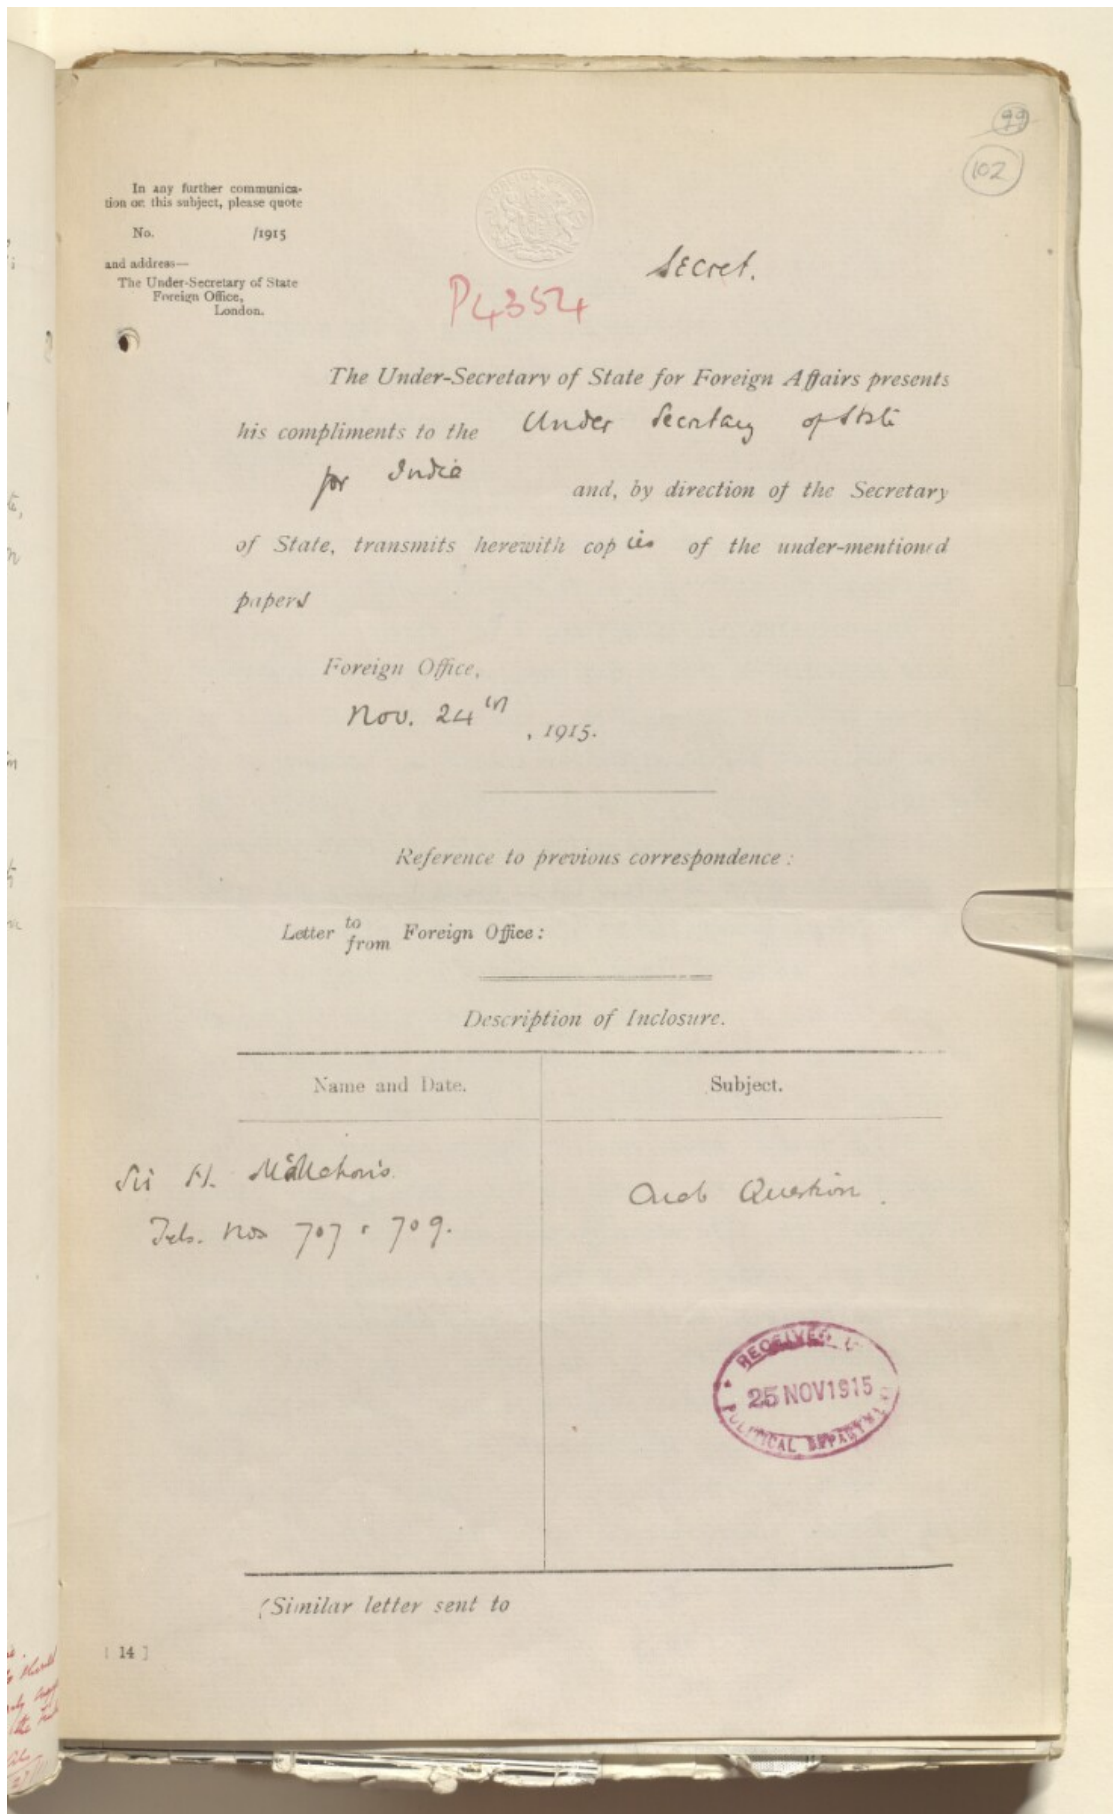 99
102
In any further communica-
tion on this subject, please quote
No. /1915
and address—
The Under-Secretary of State
Foreign Office,
London.
Secret.
P4354
The Under-Secretary of State for Foreign Affairs presents
his compliments to the Under Secretary of State
for India and, by direction of the Secretary
of State, transmits herewith copies of the under-mentioned
papers
Foreign Office,
Nov. 24th, 1915.
Reference to previous correspondence:
Letter to from Foreign Office:
Description of Inclosure.
Name and Date. Subject.
Sir H. McMahon's
Tels. Nos 707 & 709.
Arab Question.
RECEIVED
25 NOV 1915
POLITICAL DEPARTMENT
(Similar letter sent to
[14]